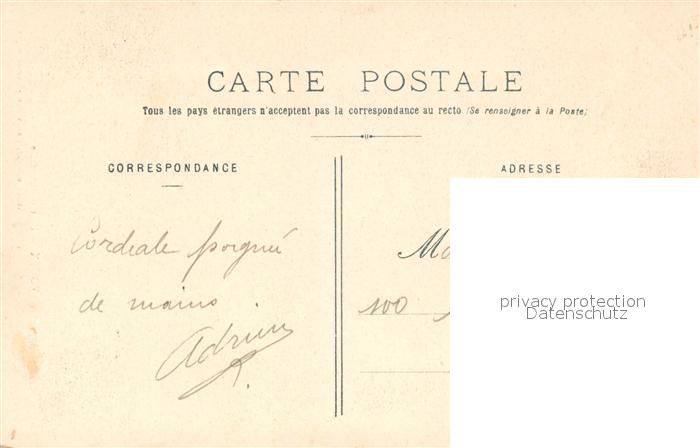 CARTE POSTALE
Tous les pays étrangers n'acceptent pas la correspondance au recto (Se renseigner à la Poste)
CORRESPONDANCE
ADRESSE
Cordiale poignée
de mains.
Adrien
100
privacy protection
Datenschutz